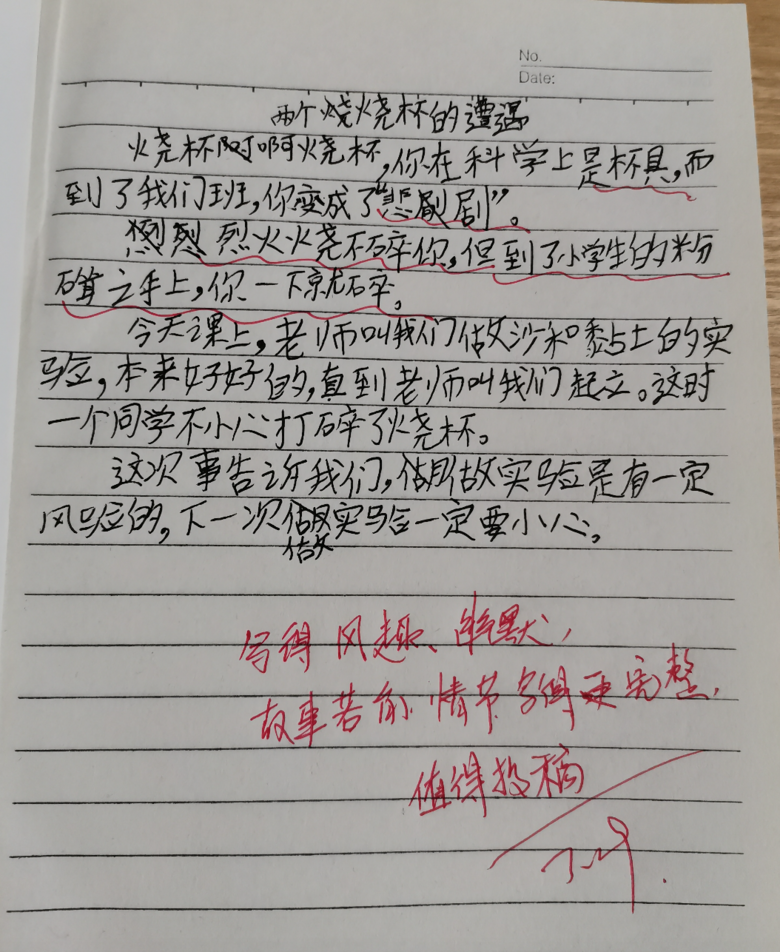 No.
Date:
两个烧烧杯的遭遇
烧杯啊啊烧杯,你在科学上是杯具,而
到了我们班,你变成了“悲剧剧”。
烈烈火火烧不碎你,但到了小学生的粉
碎之手上,你一下就碎。
今天课上,老师叫我们做沙和黏土的实
验,本来好好的,直到老师叫我们起立。这时
一个同学不小心打碎了烧杯。
这次事告诉我们,做实验是有一定
风险的,下一次做实验一定要小心。
做
写得风趣、幽默,
故事若前情节写得更完整,
值得投稿